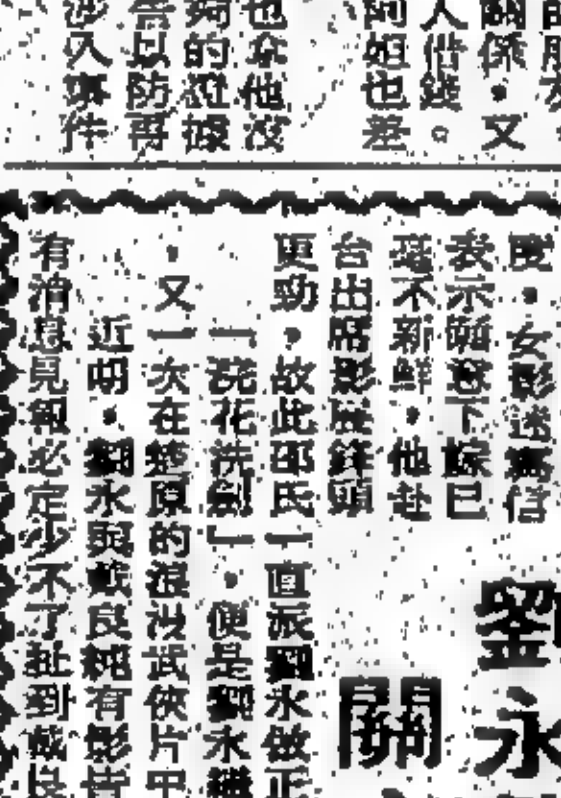 的朋友
關係・又
人借錢。
阿姐也差
也拿他沒
夠的證據
告以防再
涉入事件
度・女影迷寫信
表示願意下嫁已
毫不新鮮・他赴
台出席影展鋒頭
更勁，故此邵氏一直派劉永做正
「浣花洗劍」・便是劉永繼
・又一次在楚原的浪漫武俠片中
近期・劉永與戴良純有影皆
有消息見報必定少不了扯到戴良
劉永
關